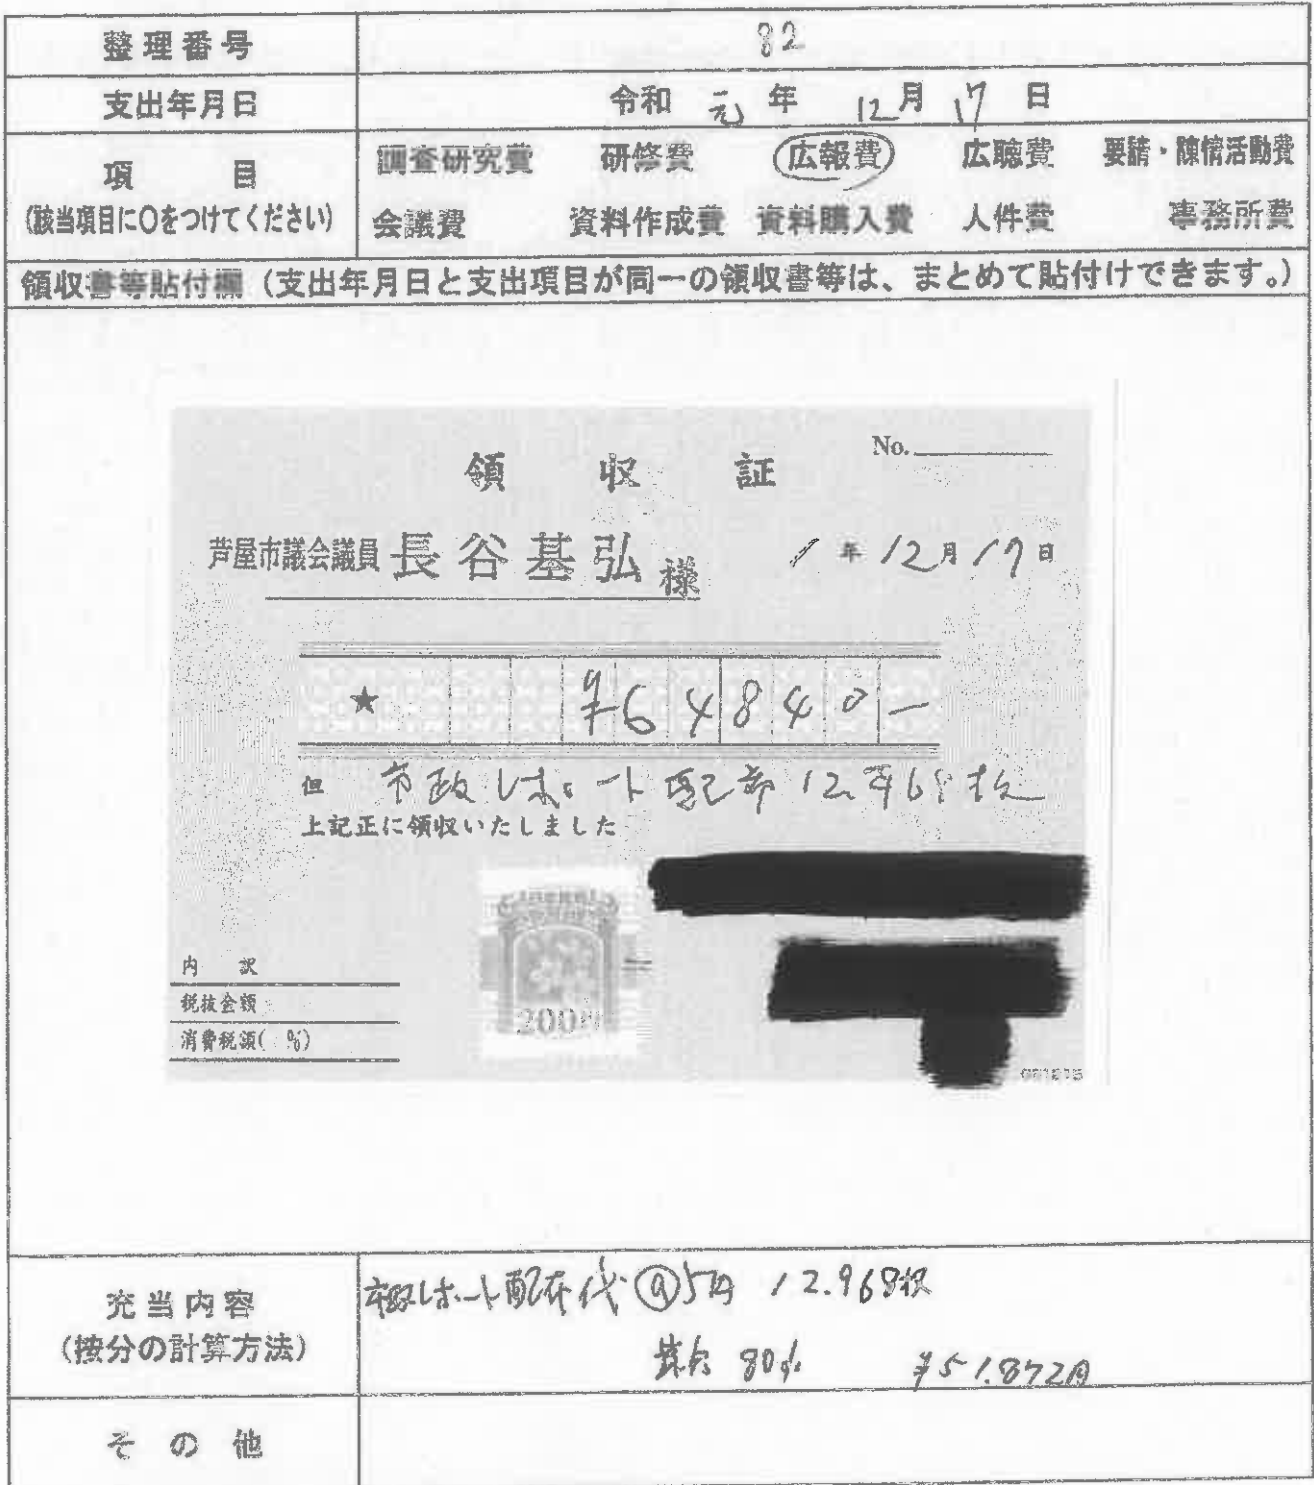 整理番号 82
支出年月日 令和 元 年 12月 17 日
項 目
(該当項目に〇をつけてください)
調査研究費 研修費 広報費 広聴費 要請・陳情活動費
会議費 資料作成費 資料購入費 人件費 事務所費
領収書等貼付欄(支出年月日と支出項目が同一の領収書等は、まとめて貼付けできます。)
領 収 証
No.
芦屋市議会議員 長谷基弘 様
1 年 12月 17日
★ ¥64840-
但 市政レポート配布 12,968枚
上記正に領収いたしました
200円
内 訳
税抜金額
消費税額( %)
充当内容
(按分の計算方法)
市政レポート配布代 @5円 12.968枚
80% ¥51.872円
そ の 他